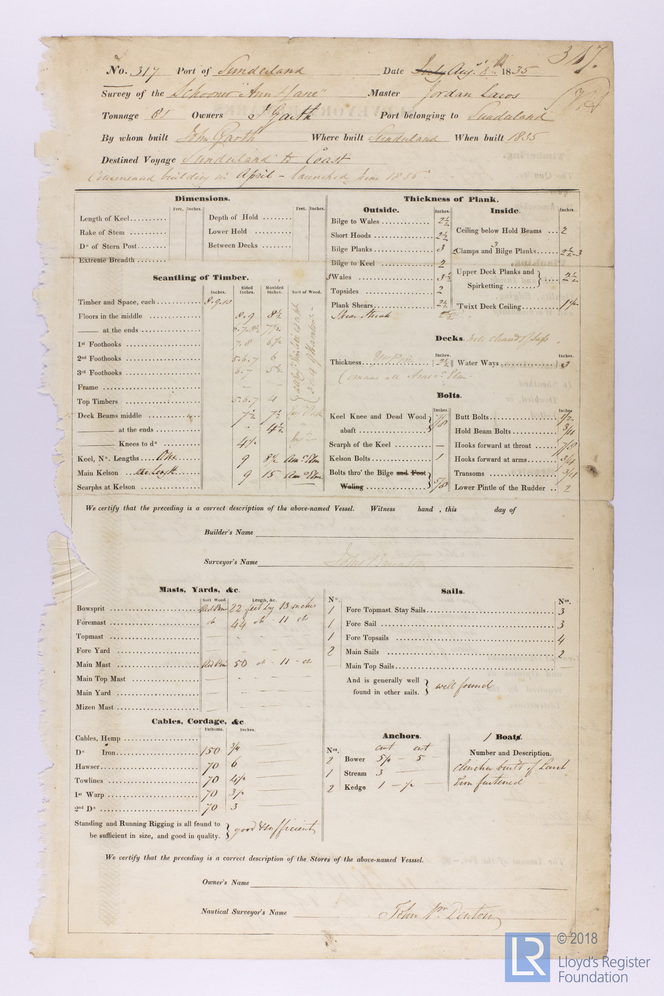 317.
No. 317 Port of Sunderland Date July Aug. 8th 1835
Survey of the Schooner "Ann & Jane" Master Jordan
Tonnage 81 Owners J Garth Port belonging to Sunderland
By whom built John Garth Where built Sunderland When built 1835
Destined Voyage Sunderland to Coast
Commenced building in April - launched June 1835
Dimensions.
Feet. Inches. Feet. Inches.
Length of Keel Depth of Hold
Rake of Stem Lower Hold
Do of Stern Post Between Decks
Extreme Breadth
Scantling of Timber.
Inches. Sided Inches. Moulded Inches. Sort of Wood.
Timber and Space, each
Floors in the middle 8.9 8½
—— at the ends
1st Foothooks
2nd Foothooks 5.6.7 6
3rd Foothooks 6.7
Frame
Top Timbers 5.6.7 4
Deck Beams middle 7½ 7½
—— at the ends 4½
—— Knees to do
Keel, No. Lengths 9 8½ Amn Elm
Main Kelson 9 15 Amn Elm
Scarphs at Kelson
Thickness of Plank.
Outside. Inches. Inside. Inches.
Bilge to Wales 2½
Short Hoods 2½
Bilge Planks 3
Bilge to Keel 2
Wales 3½
Topsides 2
Plank Shears 2½
Sheer Strake
Ceiling below Hold Beams 2
Clamps and Bilge Planks 2½.3
Upper Deck Planks and Spirketting 2½
'Twixt Deck Ceiling
Decks.
Thickness 2½ Water Ways 3
Bolts.
Inches. Inches.
Keel Knee and Dead Wood abaft 7/8
Scarph of the Keel —
Kelson Bolts 1
Bolts thro' the Bilge and Foot Waling 5/8
Butt Bolts
Hold Beam Bolts
Hooks forward at throat 7/8
Hooks forward at arms 3/4
Transoms 3/4
Lower Pintle of the Rudder 2
We certify that the preceding is a correct description of the above-named Vessel. Witness hand , this day of
Builder's Name
Surveyor's Name
Masts, Yards, &c.
Sort Wood. Length, &c.
Bowsprit Red Pine 22 feet by 13 inches
Foremast do 44 do 11 do
Topmast
Fore Yard
Main Mast Red Pine 50 do - 11 - do
Main Top Mast
Main Yard
Mizen Mast
Sails.
No. No.
1 Fore Topmast Stay Sails 3
1 Fore Sail 3
1 Fore Topsails 4
2 Main Sails 2
Main Top Sails
And is generally well found in other sails. well found
Cables, Cordage, &c
Fathoms. Inches.
Cables, Hemp
Do Iron 150 7/8
Hawser 70 6
Towlines 70
1st Warp 70
2nd Do 70 3
Standing and Running Rigging is all found to be sufficient in size, and good in quality. good & sufficient
Anchors.
No. cwt cwt
2 Bower 5
1 Stream 3
2 Kedge 1
1 Boats.
Number and Description.
clencher built of Larch Iron fastened
We certify that the preceding is a correct description of the Stores of the above-named Vessel.
Owner's Name
Nautical Surveyor's Name John Wm Denton
LR © 2018
Lloyd's Register
Foundation